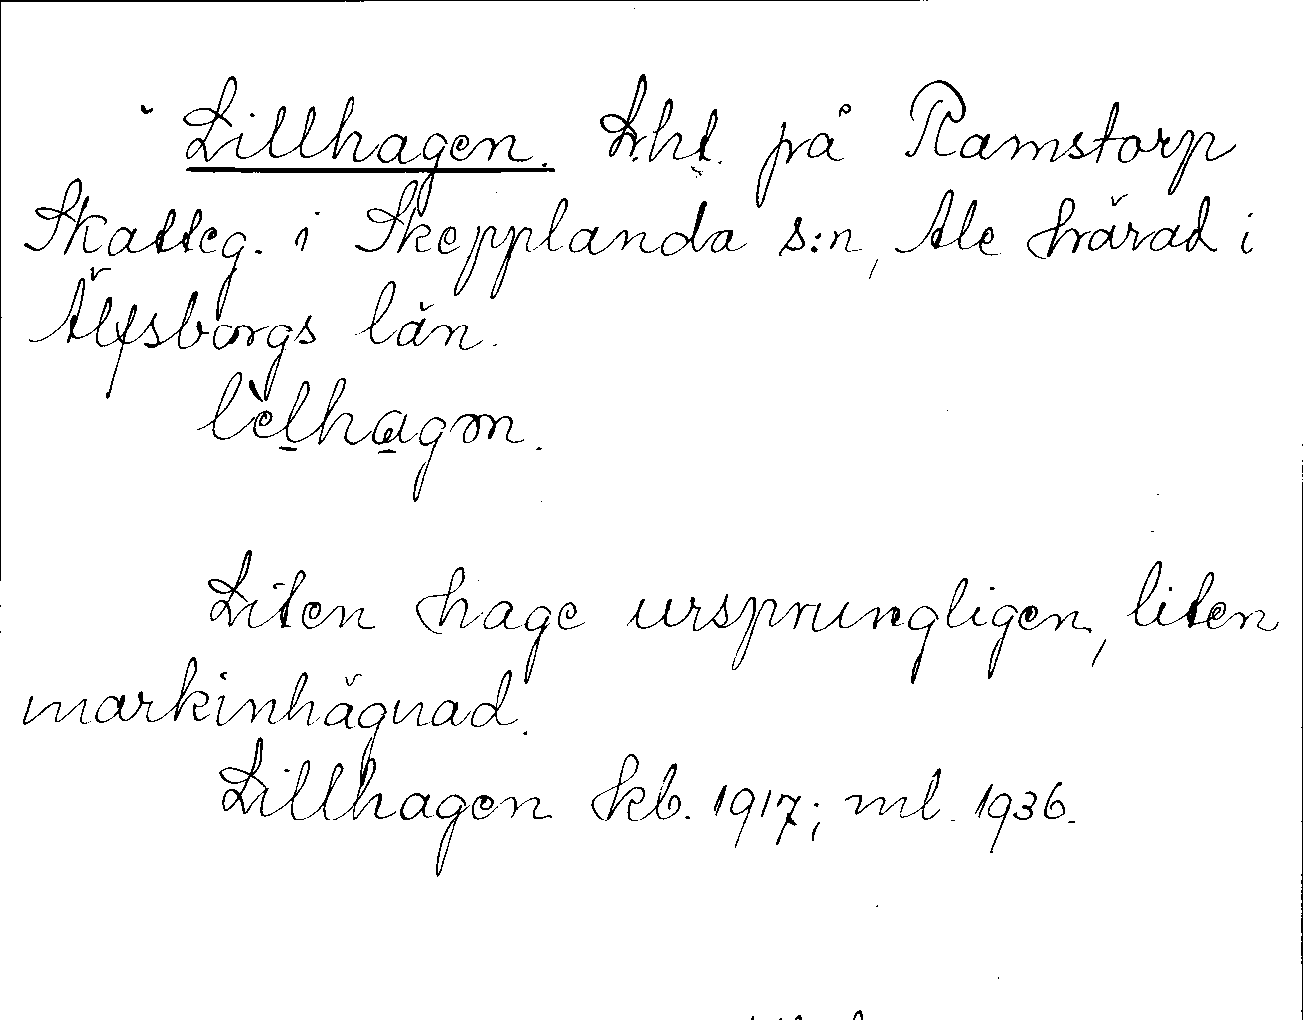 Lillhagen. Lht. på Ramstorp
Skatteg. i Skepplanda s:n, Ale härad i
Älfsborgs län.
lèlhagen.
Liten hage ursprungligen, liten
markinhägnad.
Lillhagen kb. 1917; ml. 1936.